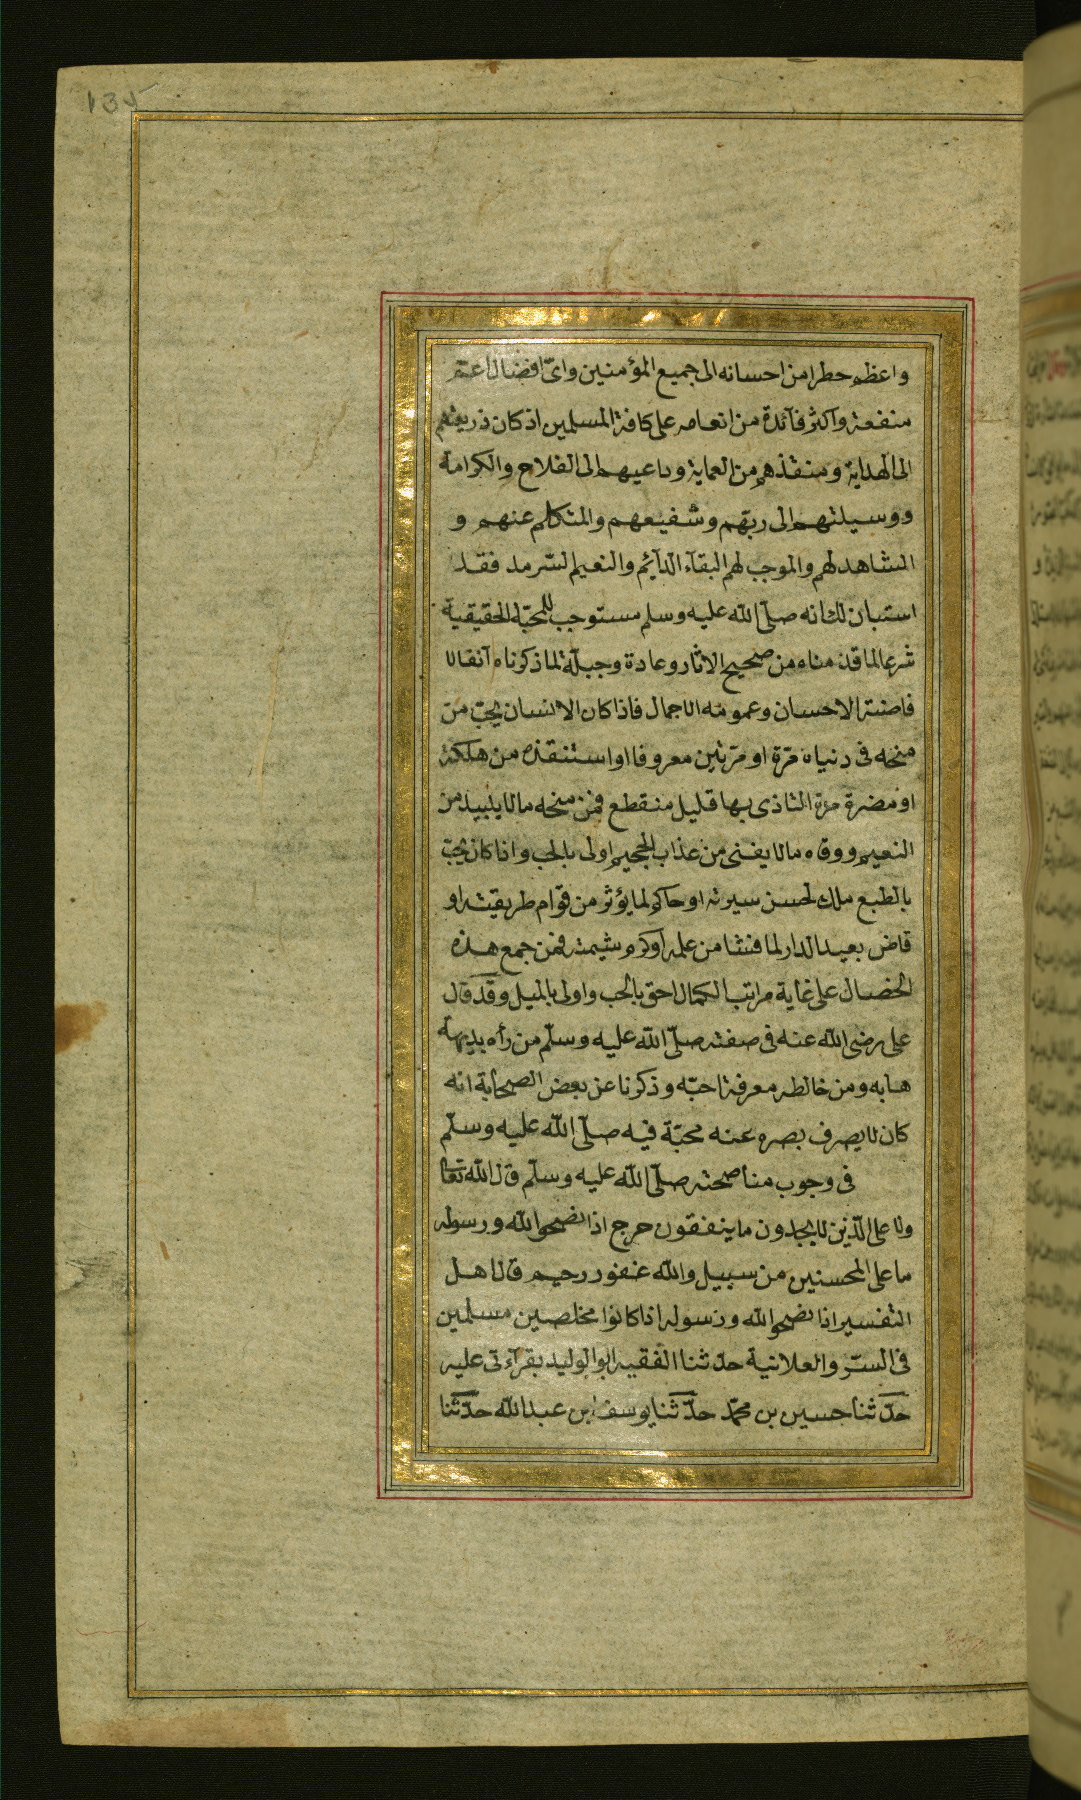 ١٣٥
واعظم خطرا من احسانه الى جميع المؤمنين واىّ افضال اعمّ
منفعة واكثر فآئدة من انعامه على كافة المسلمين اذ كان ذريعتهم
الى الهداية ومنقذهم من العماية وداعيهم الى الفلاح والكرامة
ووسيلتهم الى ربّهم وشفيعهم والمتكلم عنهم و
الشاهد لهم والموجب لهم البقآء الدآيم والنعيم السّرمد فقد
استبان لك انه صلّى الله عليه وسلم مستوجب للمحبّة الحقيقية
شرعا لما قدمناه من صحيح الاثار وعادة وجبلّة لما ذكرناه آنفا لا
فاضته الاحسان وعمومه الاجمال فاذا كان الانسان يحبّ من
منحه فى دنياه مرّة او مرّتين معروفا او استنقذه من هلكة
او مضرة مدة التاذى بها قليل منقطع فمن منحه ما لا يبيد من
النعيم ووقاه ما لا يفنى من عذاب الجحيم اولى بالحب واذا كان يحبّ
بالطبع ملك لحسن سيرته او حاكم لما يؤثر من قوام طريقته او
قاض بعيد الدار لما فشا من علمه او كرم شيمته فمن جمع هذه
الخصال على غاية مراتب الكمال احق بالحب واولى بالميل وقد قال
على رضى الله عنه فى صفته صلّى الله عليه وسلّم من رأه بديهة
هابه ومن خالطه معرفة احبّه وذكرنا عن بعض الصحابة انه
كان لا يصرف بصره عنه محبّة فيه صلّى الله عليه وسلّم
فى وجوب مناصحته صلّى الله عليه وسلّم قال الله تعا
ولا على الّذين لا يجدون ما ينفقون حرج اذا نصحوا لله ورسوله
ما على المحسنين من سبيل والله غفور رحيم قال اهل
التفسير اذا نصحوا لله ورسوله اذا كانوا مخلصين مسلمين
فى السّر والعلانية حدثنا الفقيه ابو الوليد بقرآءتى عليه
حدّثنا حسين بن محمّد حدّثنا يوسف ابن عبد الله حدّثنا